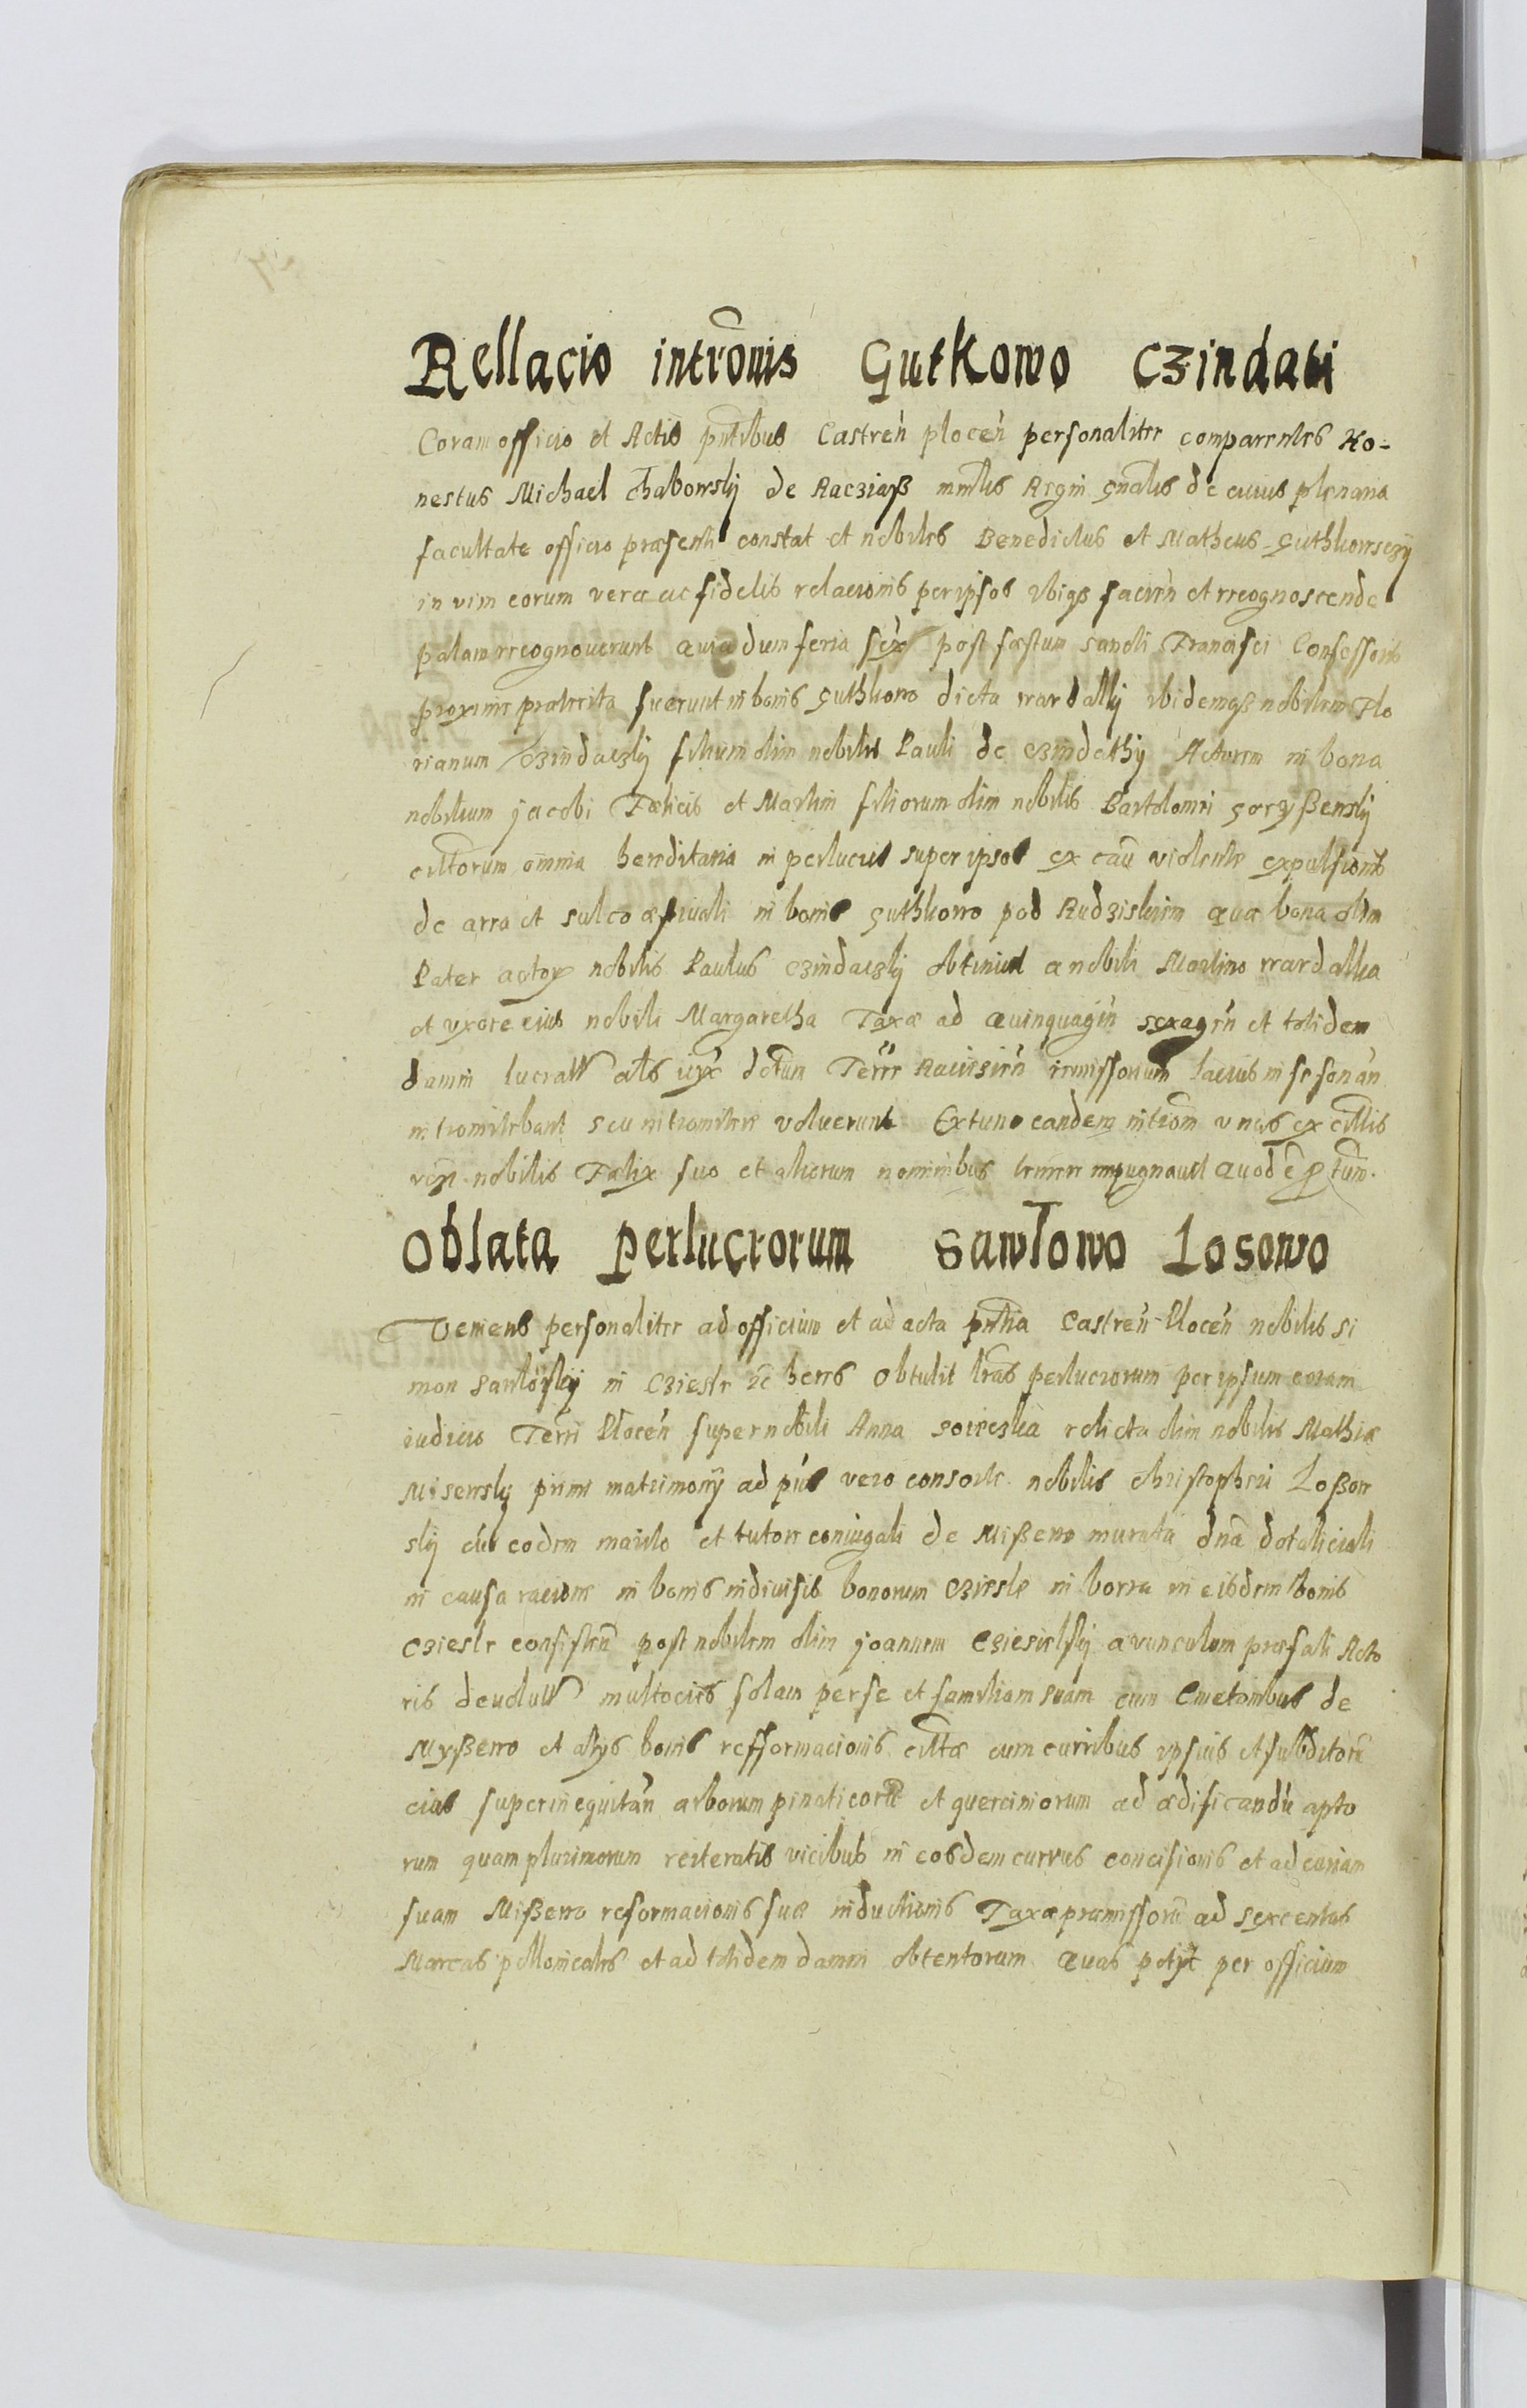 Rellacio intrōnis Gutkowo Czindati
Coram officio et Actis pñtibus Castreñ ploceñ personaliter comparentes Ho-
nestus Michael Chabowsky de Racziaß mñlis Regni gñalis de cuius plenaria
facultate officio præsenti constat et nobiles Benedictus et Matheus Guthkowsczy
in vim eorum veræ ac fidelis relacionis per ipsos ibiqs facieñ et recognoscende
palam recognoverunt Quia dum feria sex post fæstum sancti Francisci Confessoris
proxime præterita fuerunt in bonis Guthkowo dicta wardalky ibidemqs nobilem Flo
rianum Czindaczky filium olim nobilis Pauli de Czindathy Actorem in bona
nobilium Jacobi Fælicis et Martini filiorum olim nobilis Bartolomei Gorzyßewsky
cittorum omnia hereditaria in perlucris super ipsos ex cau violente expulsionis
de area et sulco æstivali in bonis Guthkowo pod Rudziskiem quæ bona olim
Pater actoris nobilis Paulus Czindaczky obtinuit a nobili Martino wardalka
et uxore eius nobili Margaretha Taxæ ad Quinquagiñ sexageñ et totidem
damni lucratt als iux detum Terr Raciezieñ remissorium lacius in se sonañ
intromitebant seu intromitere voluerunt Extunc eandem introm unus ex cittis
nobilis Fælix suo et aliorum nominibus temere impugnavit Quod ē p tum.
Oblata perlucrorum Sawlowo Losowo
Veniens personaliter ad officium et ad acta pñtia Castreñ Ploceñ nobilis Si
mon Sawlowsky in Cziesle zc heres Obtulit lras perlucrorum per ipsum coram
iudicio Terri Ploceñ super nobili Anna relicta olim nobilis Mathiæ
Misewsky primi matrimonij ad pñs vero consorte nobilis Christopheri Loßow
sky cū eodem marito et tutore coniugali de Mißewo murata dnā dotaliciali
in causa racione in bonis indivisis bonorum Cziesle in borra in eisdem bonis
Cziesle consisteñ post nobilem olim Joannem Cziesielsky avunculum præfati Acto
ris devolutt multocies solam per se et familiam suam cum Cmetonibus de
Myßewo et alijs bonis refformacionis cittæ cum curribus ipsius et subditorū
eius superinequitañ arborum pinaticorū et quercinorum ad ædificandū apto
rum quam plurimorum reiteratis vicibus in eosdem currus concisionis et ad curiam
suam Mißewo reformacionis suæ inductionis Taxæ præmissorū ad sexcentas
Marcas pollonicales et ad totidem damni obtentorum Quas petijt per officium